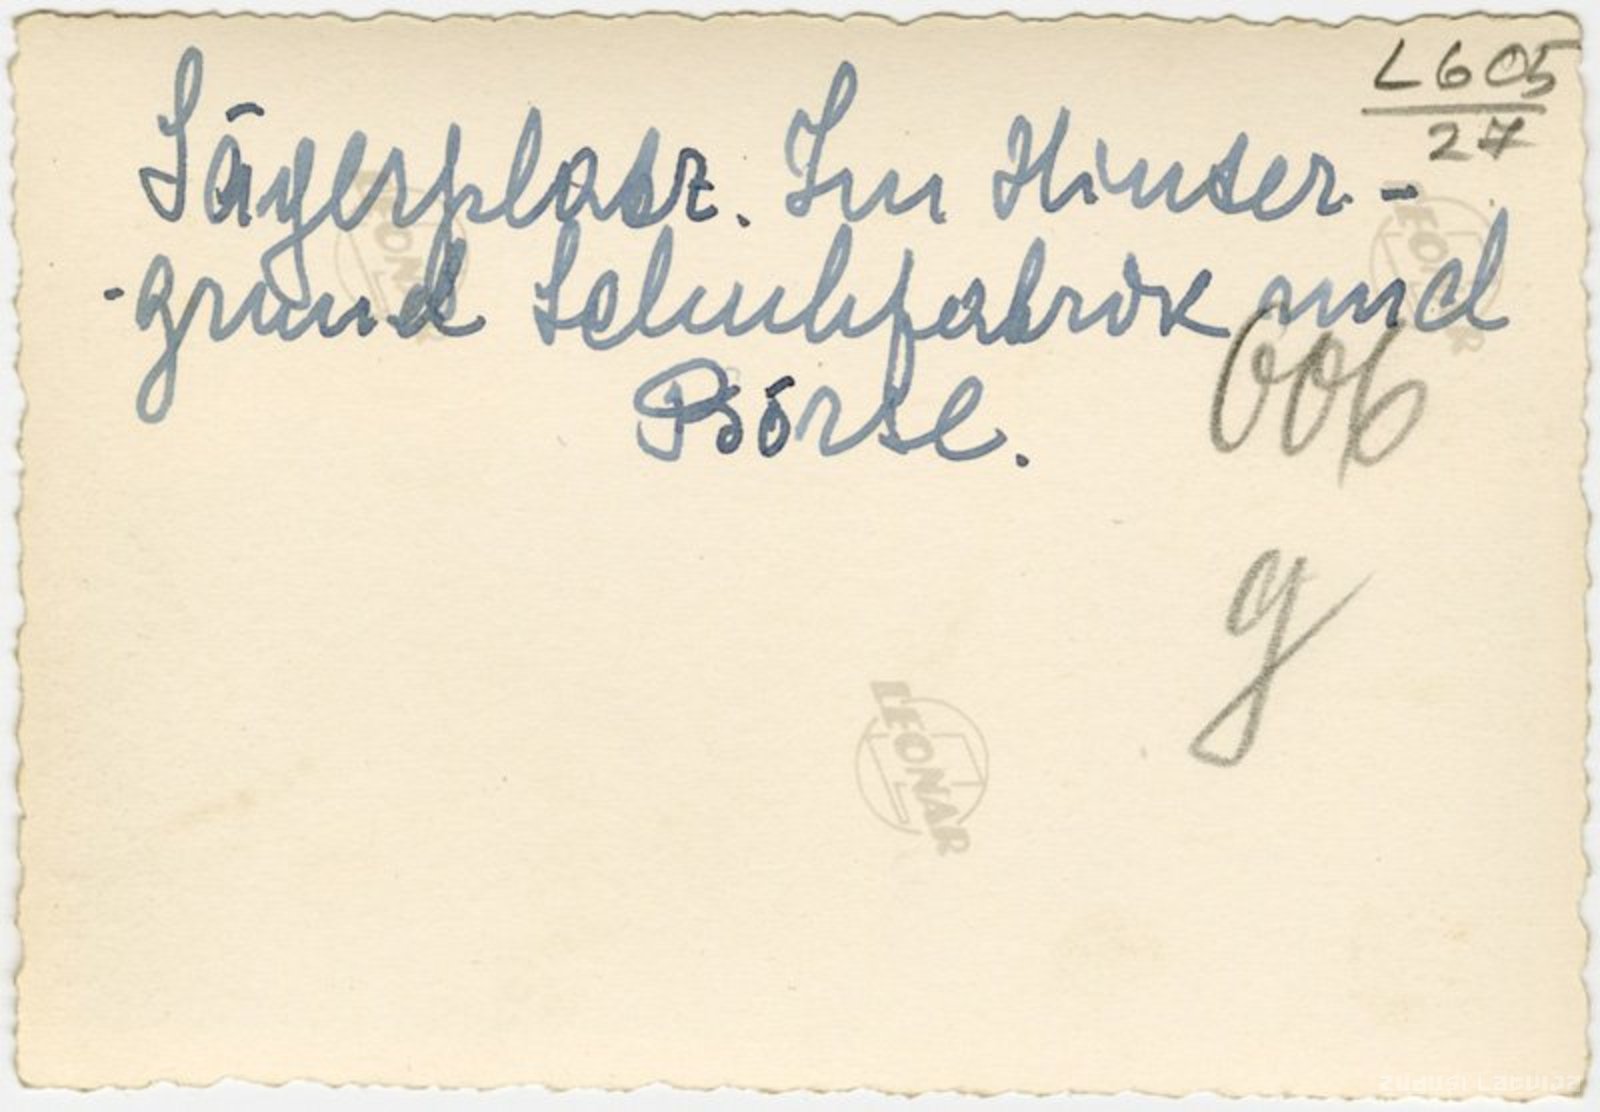 L 605
27
Jägerplatz. Im Hinter-
-grund Schuhfabrik und
Börse.
606
g
LEONAR
LEONAR
LEONAR
Zudusi Latvija